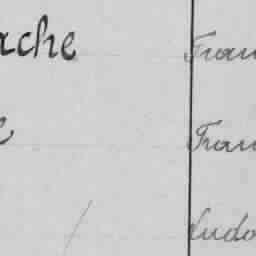 ache Fran
e Fran
Ludo